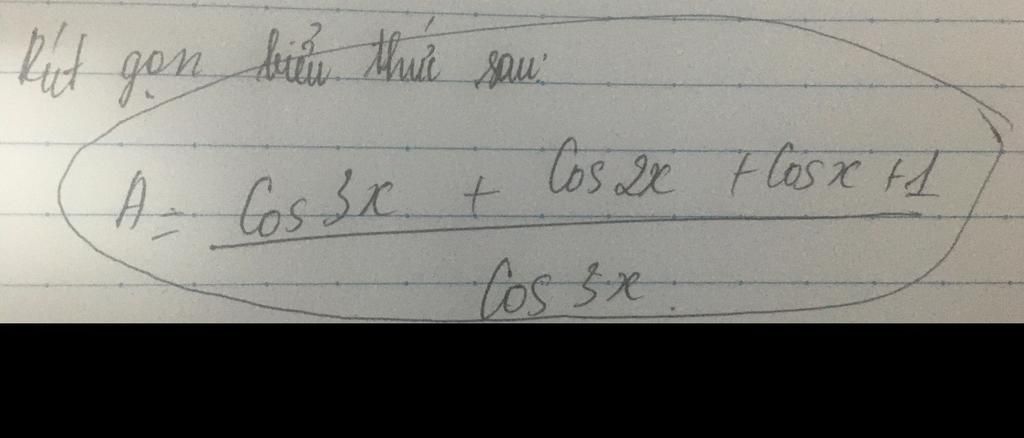 Rút gọn biểu thức sau:
A = \frac{Cos 3x + Cos 2x + Cos x + 1}{Cos 3x}